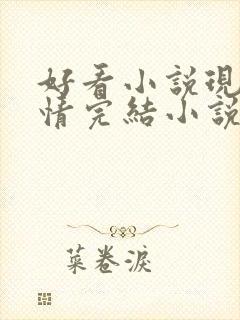 好看小說現
情完結小說
菜卷淚